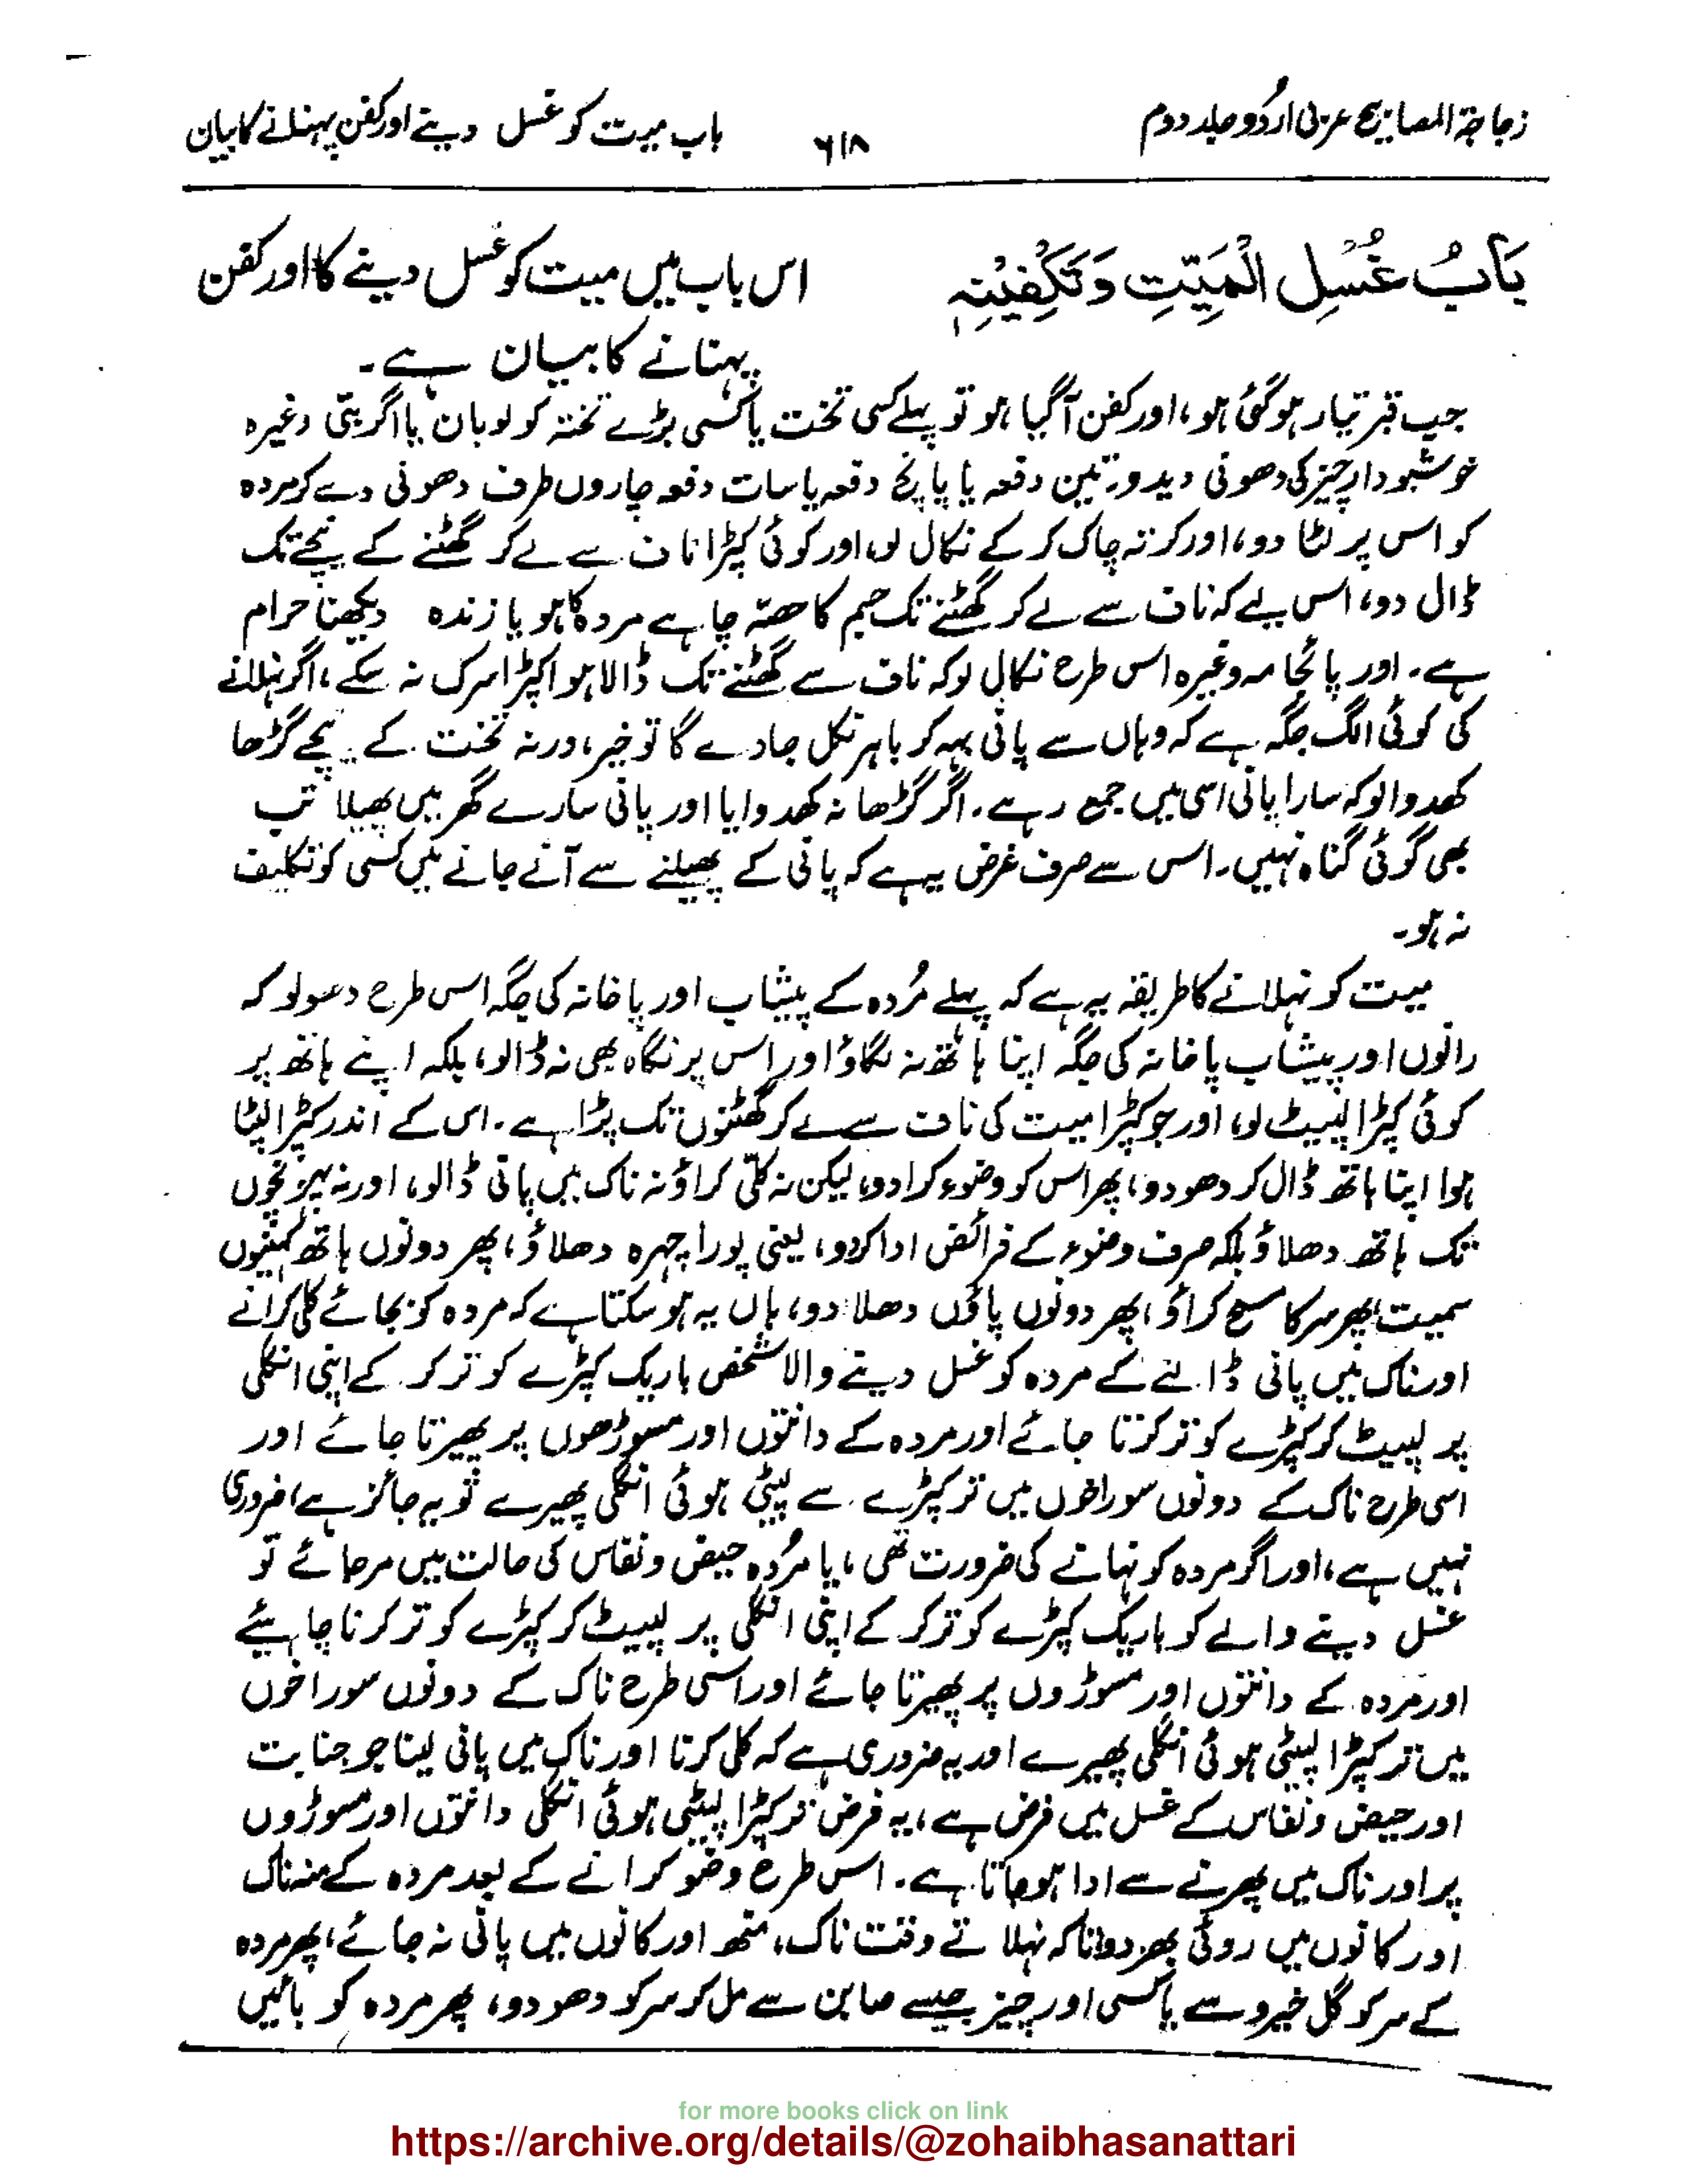 زجاجۃ المصابیح عربی اردو جلد دوم
۶۱۸
باب میت کو غسل دینے اور کفن پہنانے کا بیان
بَابُ غُسْلِ الْمَيِّتِ وَتَكْفِيْنِهٖ
اس باب میں میت کو غسل دینے کا اور کفن
پہنانے کا بیان ہے۔
جب قبر تیار ہوگئی ہو، اور کفن آگیا ہو تو پہلے کسی تخت یا کسی بڑے تختہ کو لوبان یا اگر بتی وغیرہ
خوشبودار چیز کی دھونی دیدو، تین دفعہ یا پانچ دفعہ یا سات دفعہ چاروں طرف دھونی دے کر مردہ
کو اس پر لٹا دو، اور کرتہ چاک کر کے نکال لو، اور کوئی کپڑا ناف سے لے کر گھٹنے کے نیچے تک
ڈال دو، اس لیے کہ ناف سے لے کر گھٹنے تک جسم کا حصّہ چاہے مردہ کا ہو یا زندہ دیکھنا حرام
ہے۔ اور پائجامہ وغیرہ اس طرح نکال لو کہ ناف سے گھٹنے تک ڈالا ہوا کپڑا سرک نہ سکے، اگر نہلانے
کی کوئی الگ جگہ ہے کہ وہاں سے پانی بہہ کر باہر نکل جاوے گا تو خیر، ورنہ تخت کے نیچے گڑھا
کھدوا لو کہ سارا پانی اسی میں جمع رہے۔ اگر گڑھا نہ کھدوایا اور پانی سارے گھر میں پھیلا تب
بھی کوئی گناہ نہیں۔ اس سے صرف غرض یہ ہے کہ پانی کے پھیلنے سے آنے جانے میں کسی کو تکلیف
نہ ہو۔
میت کو نہلانے کا طریقہ یہ ہے کہ پہلے مُردہ کے پیشاب اور پاخانہ کی جگہ اس طرح دھولو کہ
رانوں اور پیشاب پاخانہ کی جگہ اپنا ہاتھ نہ لگاؤ اور اس پر نگاہ بھی نہ ڈالو، بلکہ اپنے ہاتھ پر
کوئی کپڑا لپیٹ لو، اور جو کپڑا میت کی ناف سے لے کر گھٹنوں تک پڑا ہے۔ اس کے اندر کپڑا لپٹا
ہوا اپنا ہاتھ ڈال کر دھو دو، پھر اس کو وضوء کرا دو، لیکن نہ کلّی کراؤ نہ ناک میں پانی ڈالو، اور نہ پہنچوں
تک ہاتھ دھلاؤ بلکہ صرف وضوء کے فرائض ادا کردو، یعنی پورا چہرہ دھلاؤ، پھر دونوں ہاتھ کہنیوں
سمیت، پھر سر کا مسح کراؤ، پھر دونوں پاؤں دھلا دو، ہاں یہ ہو سکتا ہے کہ مردہ کو بجائے کلی کرانے
اور ناک میں پانی ڈالنے کے مردہ کو غسل دینے والا شخص باریک کپڑے کو تر کر کے اپنی انگلی
پر لپیٹ کر کپڑے کو تر کرتا جائے اور مردہ کے دانتوں اور مسوڑھوں پر پھیرتا جائے اور
اسی طرح ناک کے دونوں سوراخوں میں تر کپڑے سے لپٹی ہوئی انگلی پھیرے تو یہ جائز ہے، ضروری
نہیں ہے، اور اگر مردہ کو نہانے کی ضرورت تھی، یا مُردہ حیض و نفاس کی حالت میں مر جائے تو
غسل دینے والے کو باریک کپڑے کو تر کر کے اپنی انگلی پر لپیٹ کر کپڑے کو تر کرنا چاہیئے
اور مردہ کے دانتوں اور مسوڑوں پر پھیرتا جائے اور اسی طرح ناک کے دونوں سوراخوں
میں تر کپڑا لپیٹی ہوئی انگلی پھیرے اور یہ ضروری ہے کہ کلی کرنا اور ناک میں پانی لینا جو جنابت
اور حیض و نفاس کے غسل میں فرض ہے، یہ فرض تر کپڑا لپیٹی ہوئی انگلی دانتوں اور مسوڑوں
پر اور ناک میں پھیرنے سے ادا ہو جاتا ہے۔ اس طرح وضو کرانے کے بعد مردہ کے منہ ناک
اور کانوں میں روئی بھر دو تاکہ نہلاتے وقت ناک، منھ اور کانوں میں پانی نہ جائے، پھر مردہ
کے سر کو گل خیرو سے یا کسی اور چیز جیسے صابن سے مل کر سر کو دھو دو، پھر مردہ کو بائیں
for more books click on link
https://archive.org/details/@zohaibhasanattari